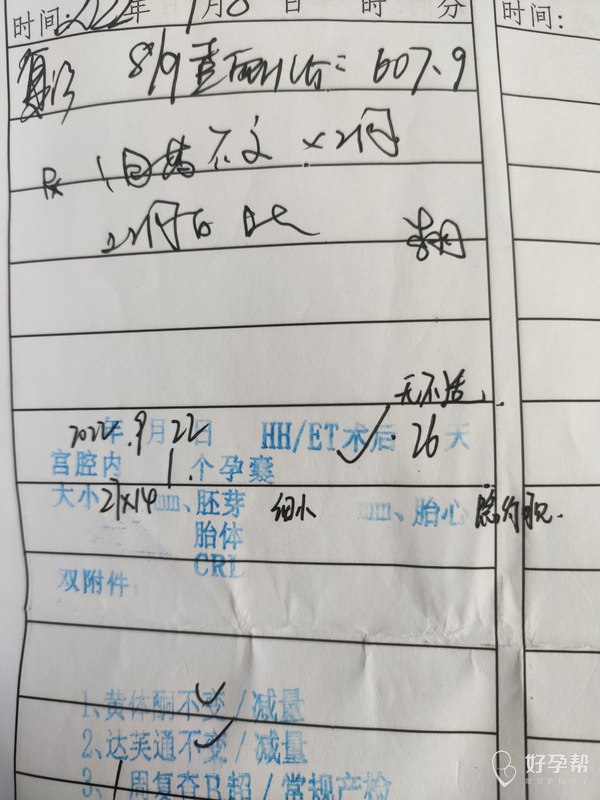 时间:2022年9月8日 时 分
时间:
复诊 8/9查血HCG: 607.9
Rx 1 因素不变 x2周
2周后B超
无不适.
2022年9月22日 HH/ET术后✓.26天
宫腔内 1 个孕囊
大小21x14mm、胚芽 细小 mm、胎心 隐约可见.
胎体
CRL
双附件
1、黄体酮不变✓/减量
2、达芙通不变✓/减量
3、1周复查B超/常规产检
好孕帮